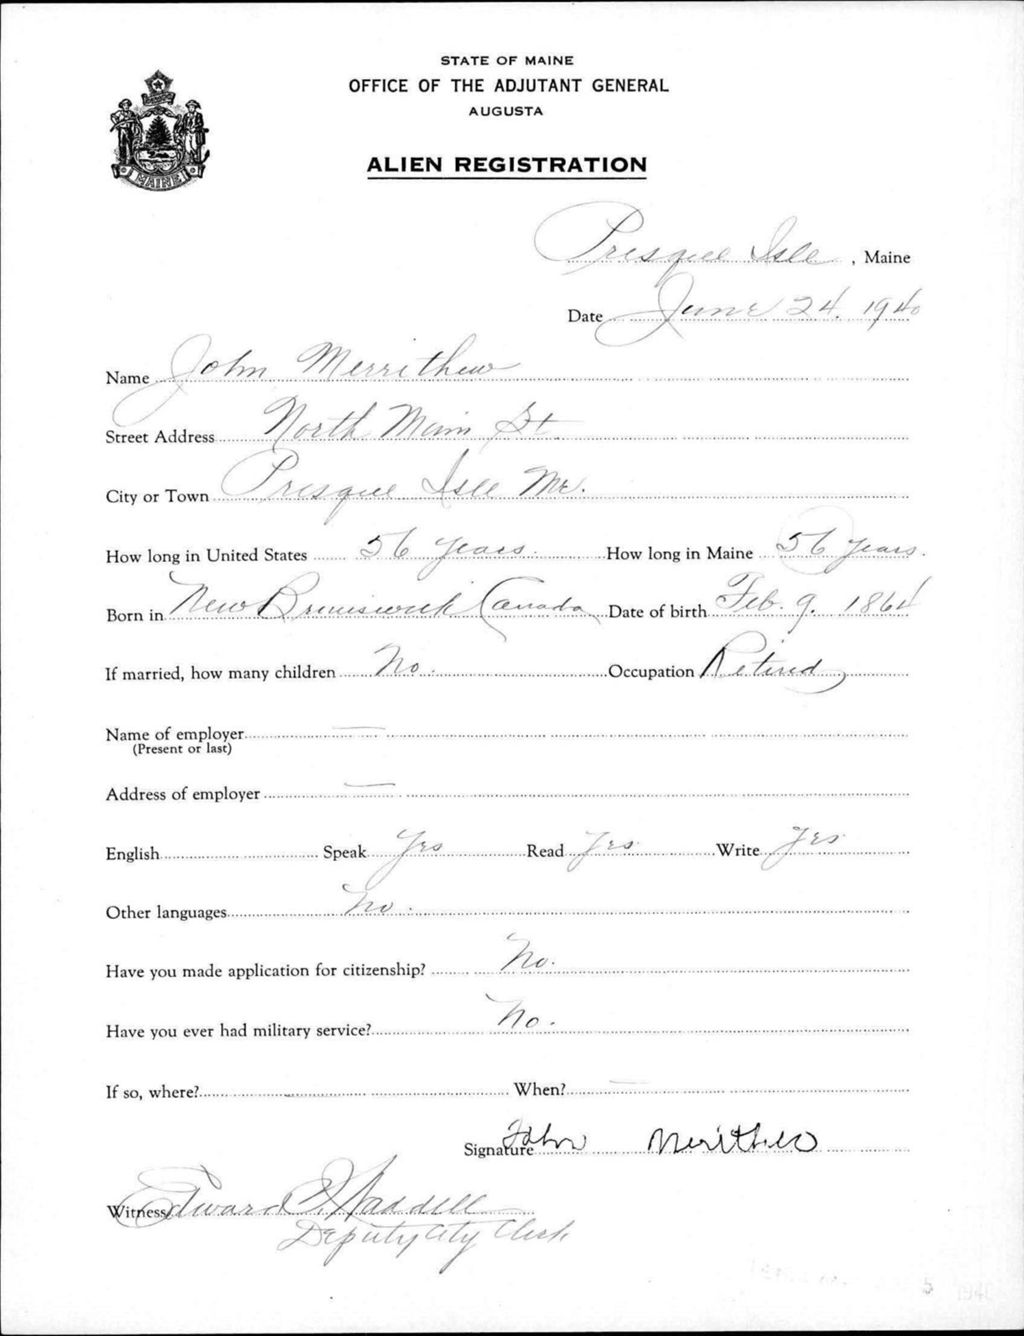 STATE OF MAINE
OFFICE OF THE ADJUTANT GENERAL
AUGUSTA
MAINE
ALIEN REGISTRATION
Presque Isle, Maine
Date June 24. 1940
Name John Merrithew
Street Address North Main St.
City or Town Presque Isle Me.
How long in United States 56 years. How long in Maine 56 years.
Born in New Brunswick Canada Date of birth Feb. 9. 1864
If married, how many children No. Occupation Retired
Name of employer —
(Present or last)
Address of employer —
English Speak Yes Read Yes Write Yes
Other languages No.
Have you made application for citizenship? No.
Have you ever had military service? No.
If so, where? When? —
Signature John Merithew
Witness Edward Waddell
Deputy City Clerk
5 1940